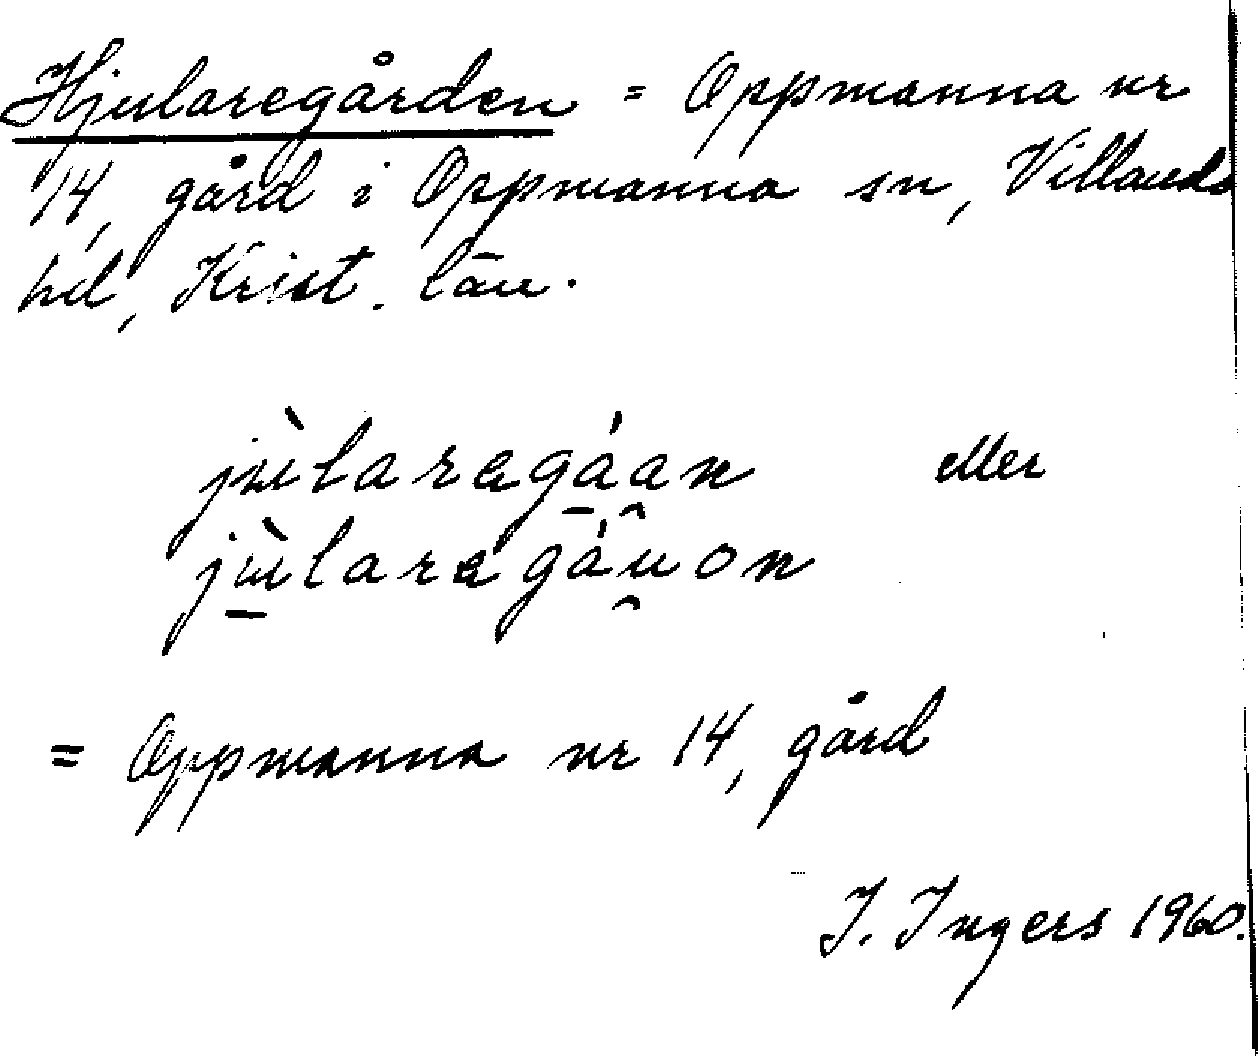 Hjularegården = Oppmanna nr
14, gård i Oppmanna sn, Villands
hd, Krist. län.
jɯ̀laragáan eller
jɯ̀laragáuon
= Oppmanna nr 14, gård
I. Ingers 1960.